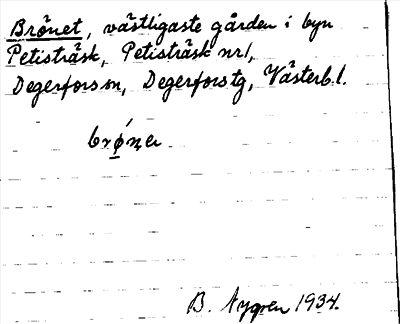 Brönet, västligaste gården i byn
Petisträsk, Petisträsk nr 1,
Degerfors sn, Degerfors tg, Västerb. l.
brǿ̱ṇer
B. Nygren 1934.